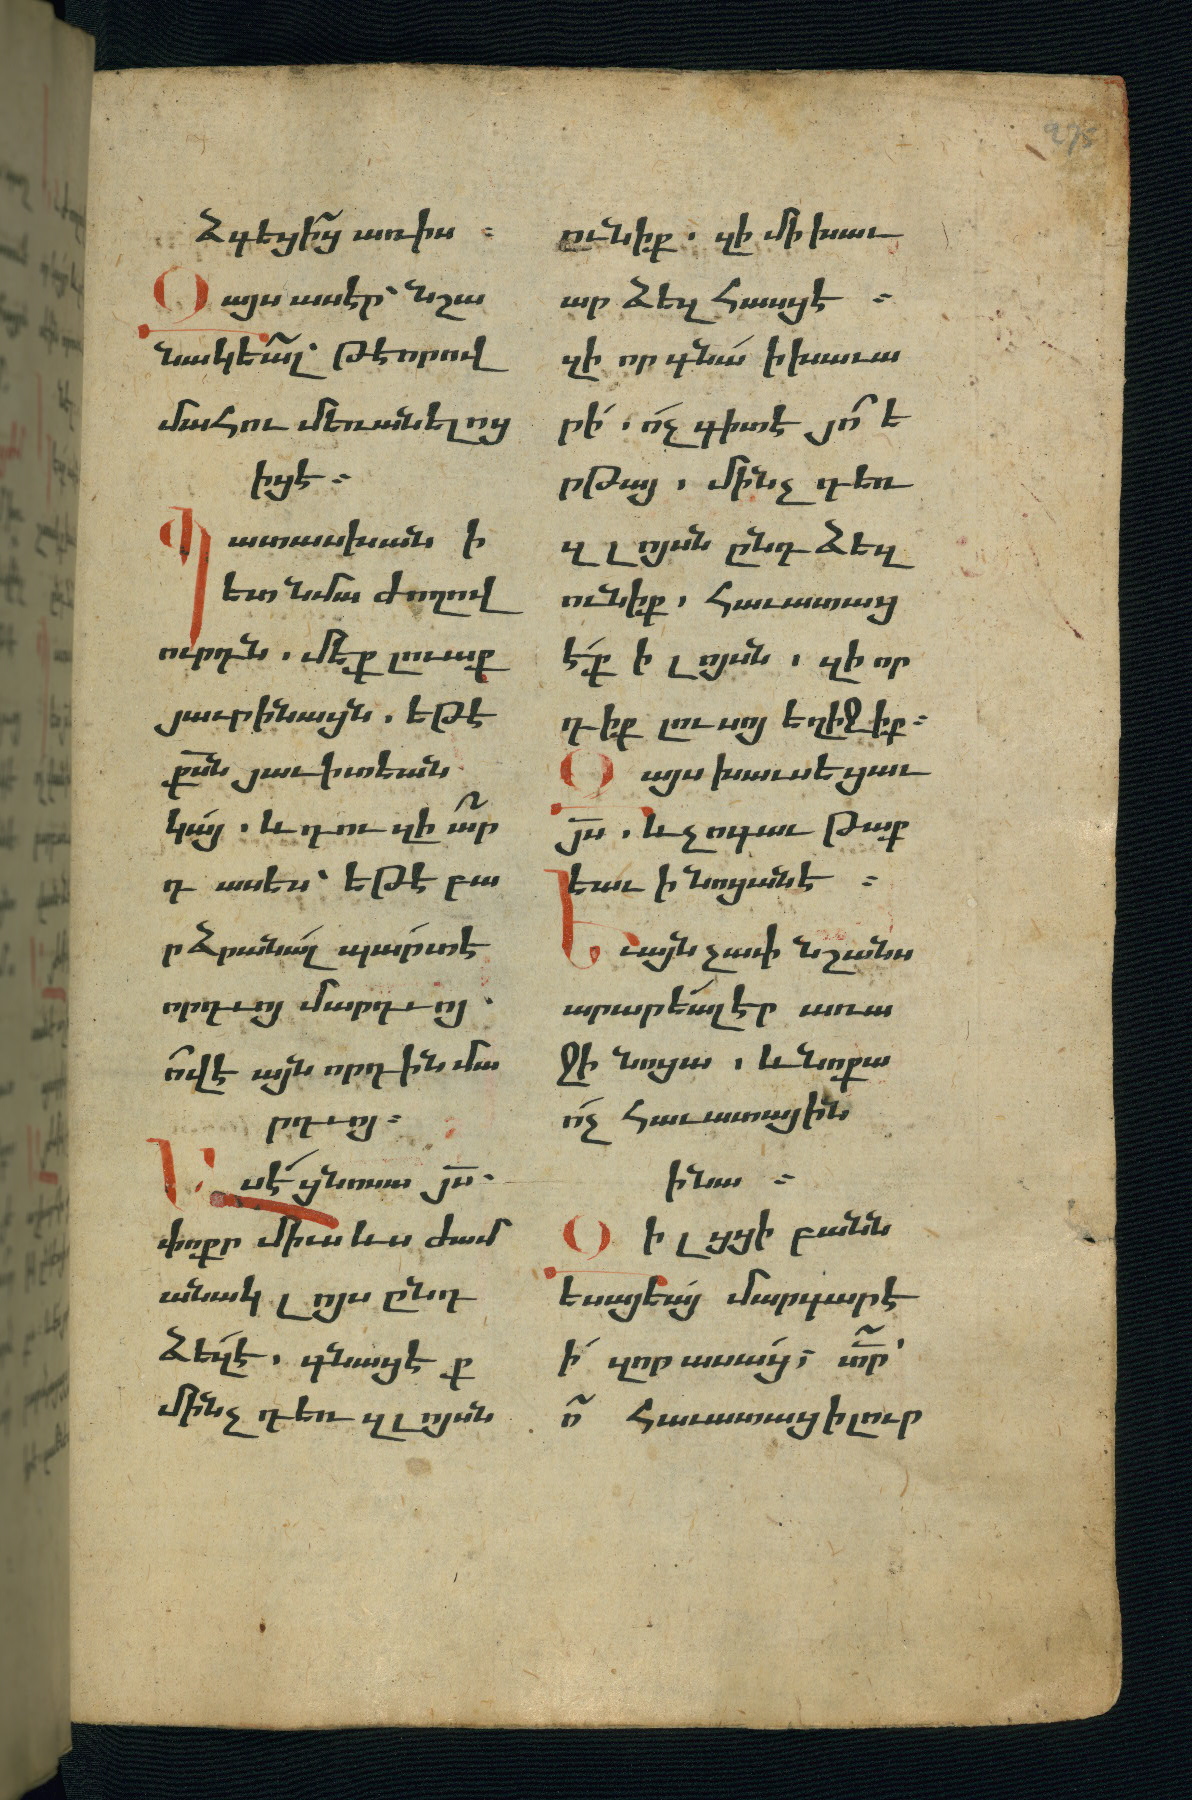 278
ձգեցի՜ց առիս ։
Զայս ասէր՝ նշա
նակեա՜լ՝ թէորով
մահու մեռանելոց
իցէ ։
Պատասխանի ի
ետ նմա ժողով
ուրդն . մեք լուաք
յաւրինացն , եթէ
քսն յաւիտեան
կա՛յ . և դու զիա՜ր
դ ասես՝ եթէ բա
րձրանա՛լ պարտէ
որդւոյ մարդւոյ .
ո՜վէ այն որդին մա
րդւոյ ։
Ասէ՛ ցնոսա յս .
փոքր միւս ևս ժամ
անակ լոյս ընդ
ձեզէ . գնացէք
մինչ դեռ զլոյսն
ունիք . զի մի խաւ
ար ձեզ հասցէ ։
զի որ գնա՛ ի խաւա
րի՛ , ո՛չ գիտէ յո՜ ե
րթայ , մինչ դեռ
զլոյսն ընդ ձեզ
ունիք , հաւատաց
է՛ք ի լոյսն , զի որ
դիք լուսոյ եղիջիք ։
Զայս խաւսեցաւ
յս , և չոգաւ թաք
եաւ ի նոցանէ ։
Եւայն չափ նշանս
արարեա՛լէր առա
ջի նոցա , և նոքա
ո՛չ հաւատային
ինա ։
Զի լցցի բանն
եսայեայ մարգարէ
ի՛ զոր ասաց ։ տր՝
ո՜ հաւատաց ի լուր